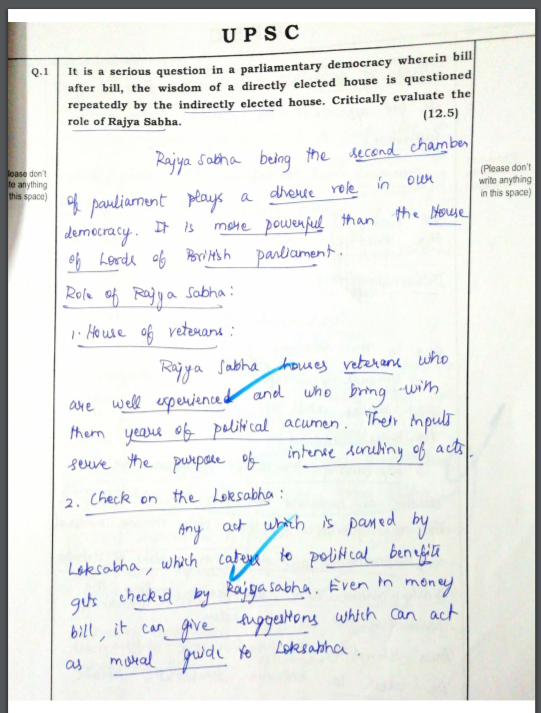 UPSC
Q.1
It is a serious question in a parliamentary democracy wherein bill
after bill, the wisdom of a directly elected house is questioned
repeatedly by the indirectly elected house. Critically evaluate the
role of Rajya Sabha. (12.5)
lease don't
te anything
this space)
(Please don't
write anything
in this space)
Rajya Sabha being the second chamber
of parliament plays a diverse role in our
democracy. It is more powerful than the House
of Lords of British parliament.
Role of Rajya Sabha :
1. House of veterans :
Rajya Sabha houses veterans who
are well experienced and who bring with
them years of political acumen. Their inputs
serve the purpose of intense scrutiny of acts.
2. Check on the Loksabha :
Any act which is passed by
Loksabha, which caters to political benefits
gets checked by Rajyasabha. Even in money
bill, it can give suggestions which can act
as moral guide to Loksabha.